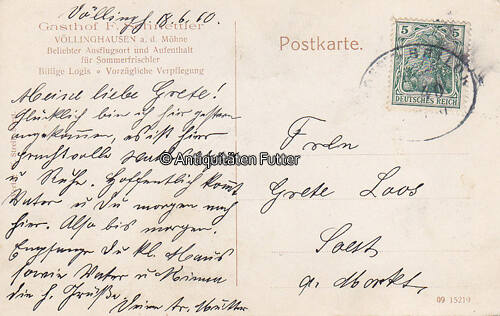 Völlingh. 18.6.10.
Gasthof F.
VÖLLINGHAUSEN a. d. Möhne
Beliebter Ausflugsort und Aufenthalt
für Sommerfrischler
Billige Logis • Vorzügliche Verpflegung
Meine liebe Grete!
Glücklich bin ich hier gestern
angekommen, es ist hier
prachtvolle
u Ruhe. Hoffentlich kommt
Vater u Du morgen nach
hier. Also bis morgen.
Empfange Du kl. Maus
sowie Vater u
die h. Grüße
Deine tr. Mutter
© Antiquitäten Futter
Postkarte.
5 5
DEUTSCHES REICH
Frln
Grete Loos
Soest
a. Markt
09 15219